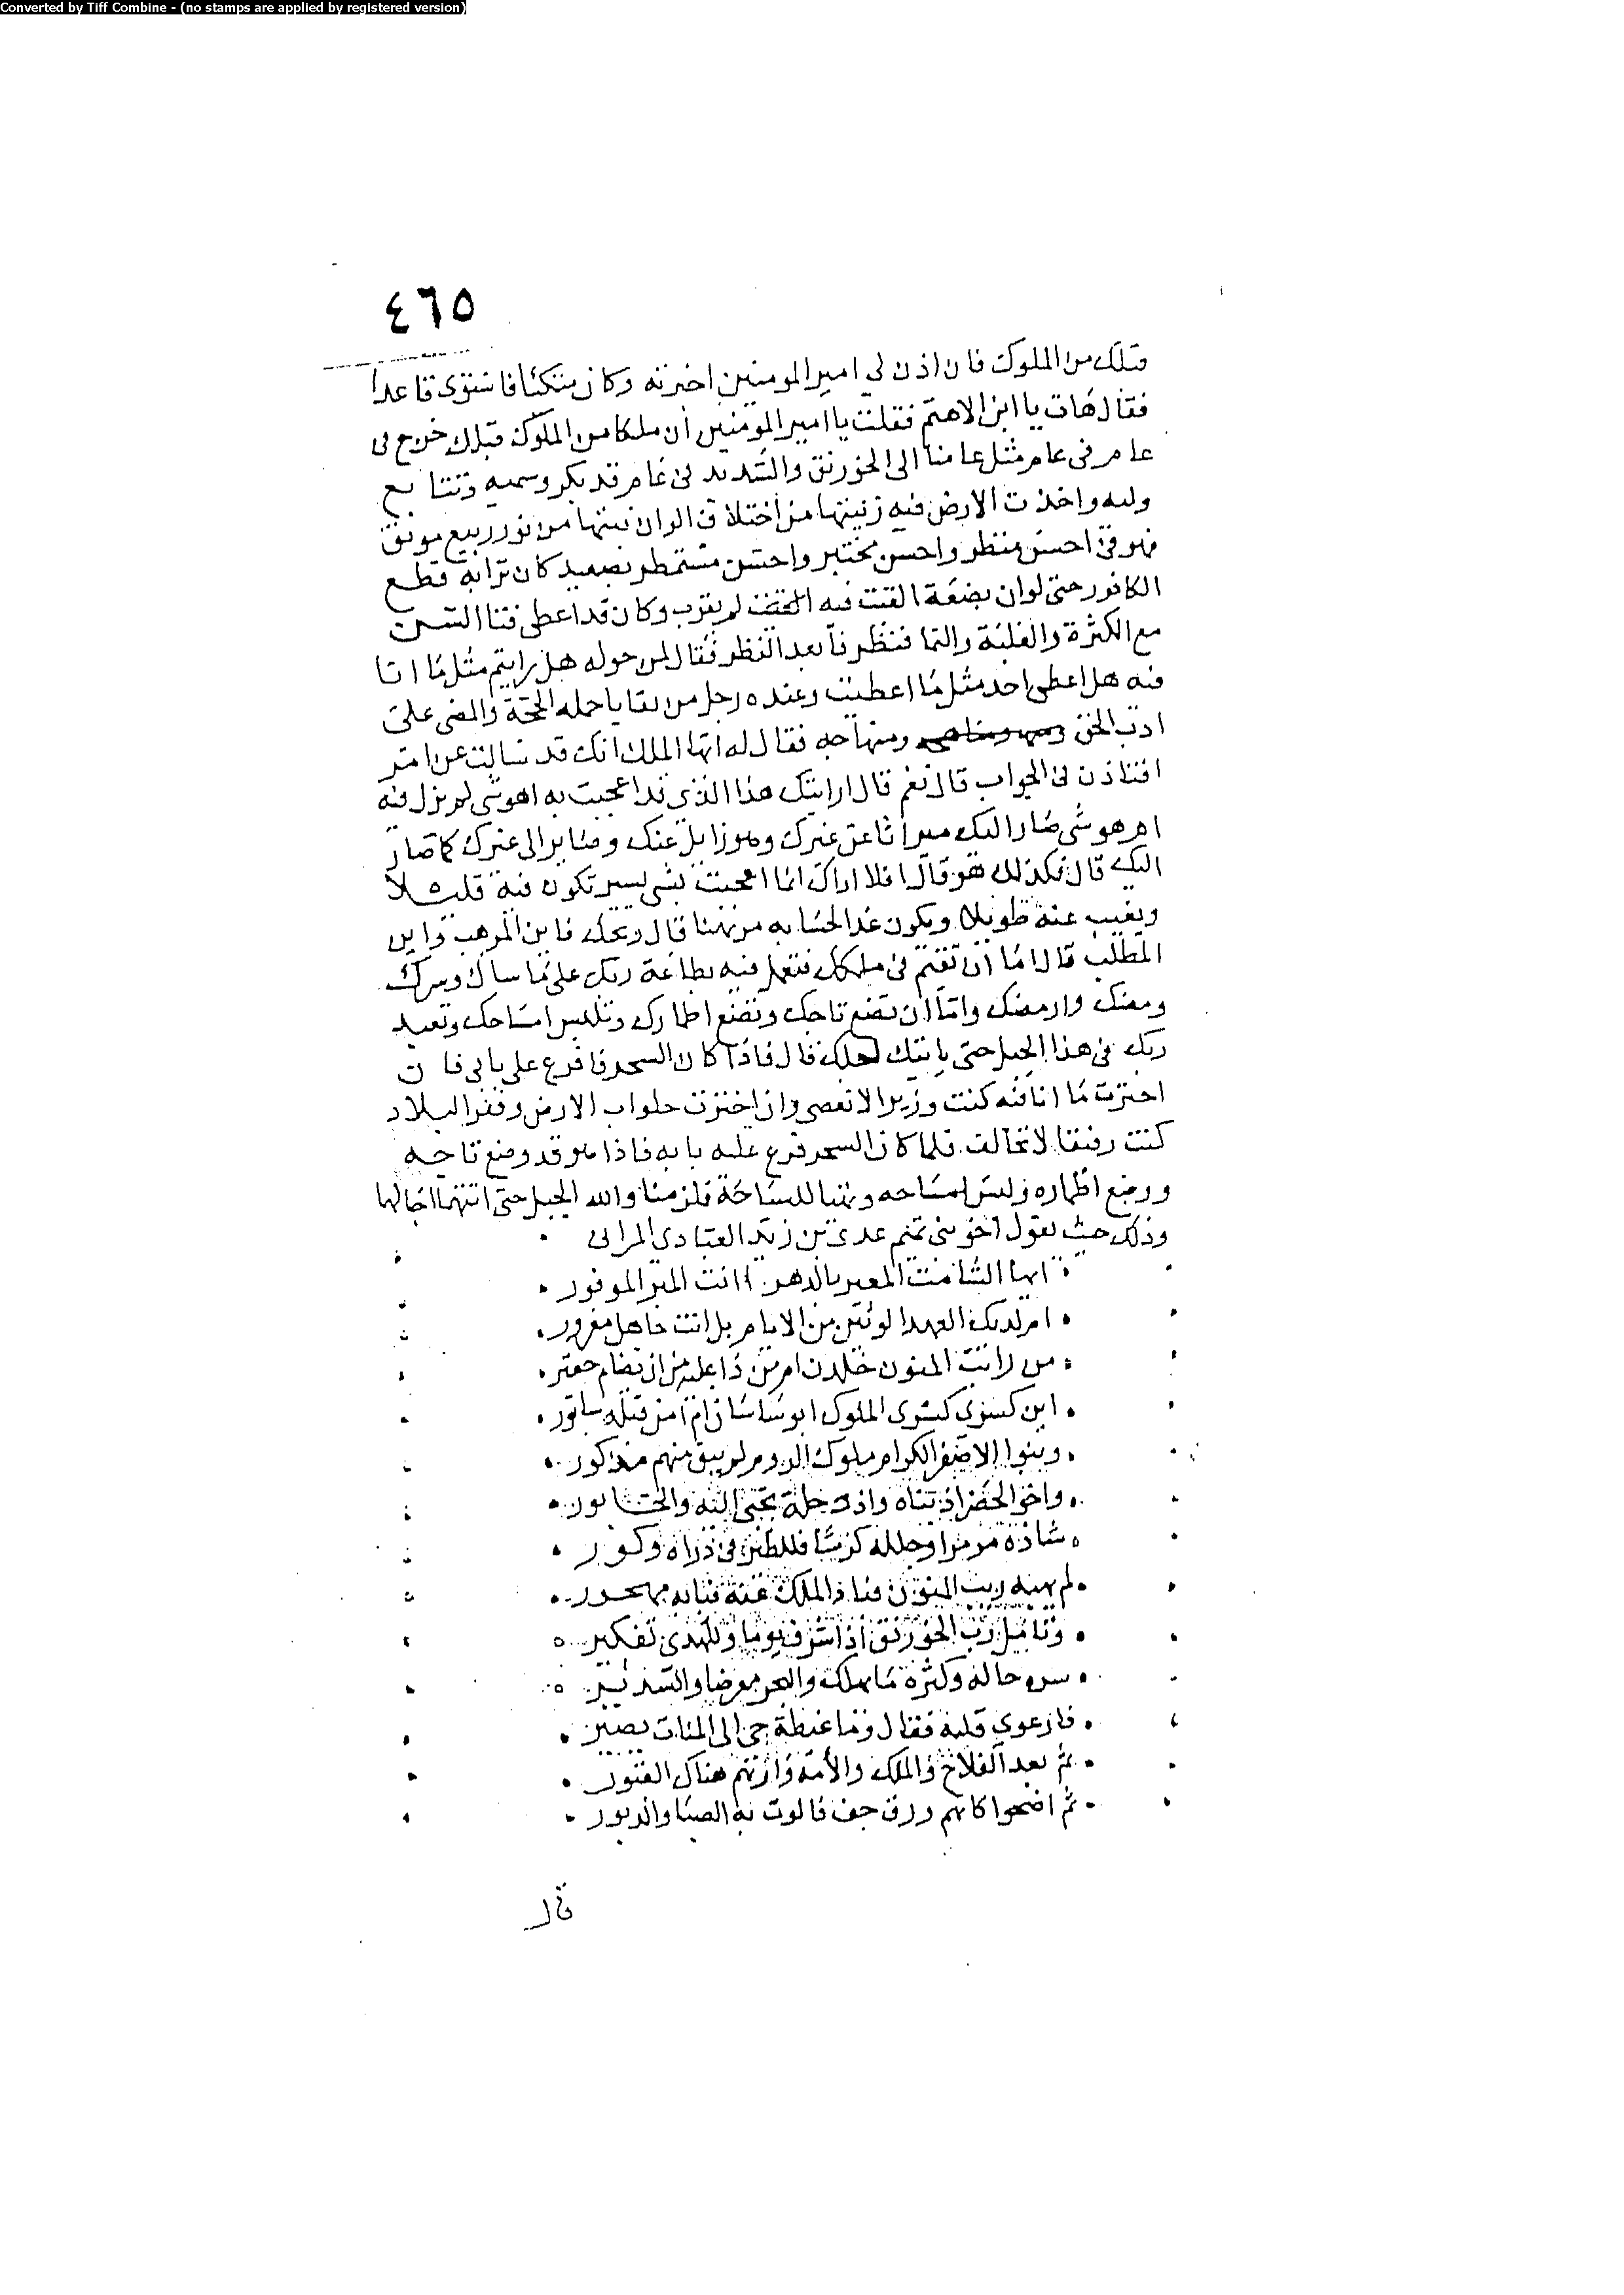 Converted by Tiff Combine - (no stamps are applied by registered version)
٤٦٥
قبلك من الملوك فان اذن لي امير المومنين اخبرته وكان متكئا فاستوى قاعدا
فقال هات يا ابن الاهتم فقلت يا امير المومنين ان ملكا من الملوك قبلك خرج في
عام في عام مثل عامنا الى الخورنق والسدير في عام قد بكر وسميه وتتابع
وليه واخذت الارض فيه زينتها من اختلاف الوان نبتها من نور ربيع مونق
فهو في احسن منظر واحسن مختبر واحسن مستمطر بصعيد كان ترابه قطع
الكافور حتى لو ان بضعة القيت فيه لم تترب وكان قد اعطي فتا السن
مع الكثرة والغلبة والنما فنظر فابعد النظر فقال لمن حوله هل رايتم مثل ما انا
فيه هل اعطي احد مثل ما اعطيت وعنده رجل من بقايا حمله الحجة والمضي على
ادب الحق ومنهاجه فقال له ايها الملك انك قد سالت عن امر
افتاذن في الجواب قال نعم قال ارايتك هذا الذي قد اعجبت به اهو شي لم يزل فيه
ام هو شي صار اليك ميراثا عن غيرك وهو زايل عنك وصاير الى غيرك كما صار
اليك قال فكذلك هو قال افلا اراك انما اعجبت بشي يسير تكون فيه قليلا
وتغيب عنه طويلا ويكون غدا لحسابه مرتهنا قال ويحك فاين المهرب واين
المطلب قال اما ان تقيم في ملكك فتعمل فيه بطاعة ربك على ما ساك وسرك
ومضك وارمضك واما ان تضع تاجك وتضع اطمارك وتلبس امساحك وتعبد
ربك في هذا الجبل حتى ياتيك اجلك قال فاذا كان السحر فاقرع على بابي فان
اخترت ما انا فيه كنت وزيرا لا تعصى وان اخترت خلوات الارض وقفر البلاد
كنت رفيقا لا تخالف فلما كان السحر قرع عليه بابه فاذا هو قد وضع تاجه
ووضع اطماره ولبس امساحه وتهيا للسياحة فلزمنا والله الجبل حتى اتتهما اجالهما
وذلك حيث يقول اخو بني تميم عدي بن زيد العبادي المرائي
ايها الشامت المعير بالدهر اانت المبرا الموفور
ام لديك العهد الوثيق من الايام بل انت جاهل مغرور
من رايت المنون خلدن ام من ذا عليه من ان يضام خفير
اين كسرى كسرى الملوك ابو ساسان ام اين قبله سابور
وبنوا الاصفر الكرام ملوك الروم لم يبق منهم مذكور
واخو الحضر اذ بناه واذ دجلة تجبى اليه والخابور
شاده مرمرا وجلله كلسا فللطير في ذراه وكور
لم يهبه ريب المنون فباد الملك عنه فبابه مهجور
وتامل رب الخورنق اذ اشرف يوما وللهدى تفكير
سره حاله وكثرة ما يملك والبحر معرضا والسدير
فارعوى قلبه فقال وما غبطة حي الى الممات يصير
ثم بعد الفلاح والملك والامة وارتهم هناك القبور
ثم اضحوا كانهم ورق جف فالوت به الصبا والدبور
قال